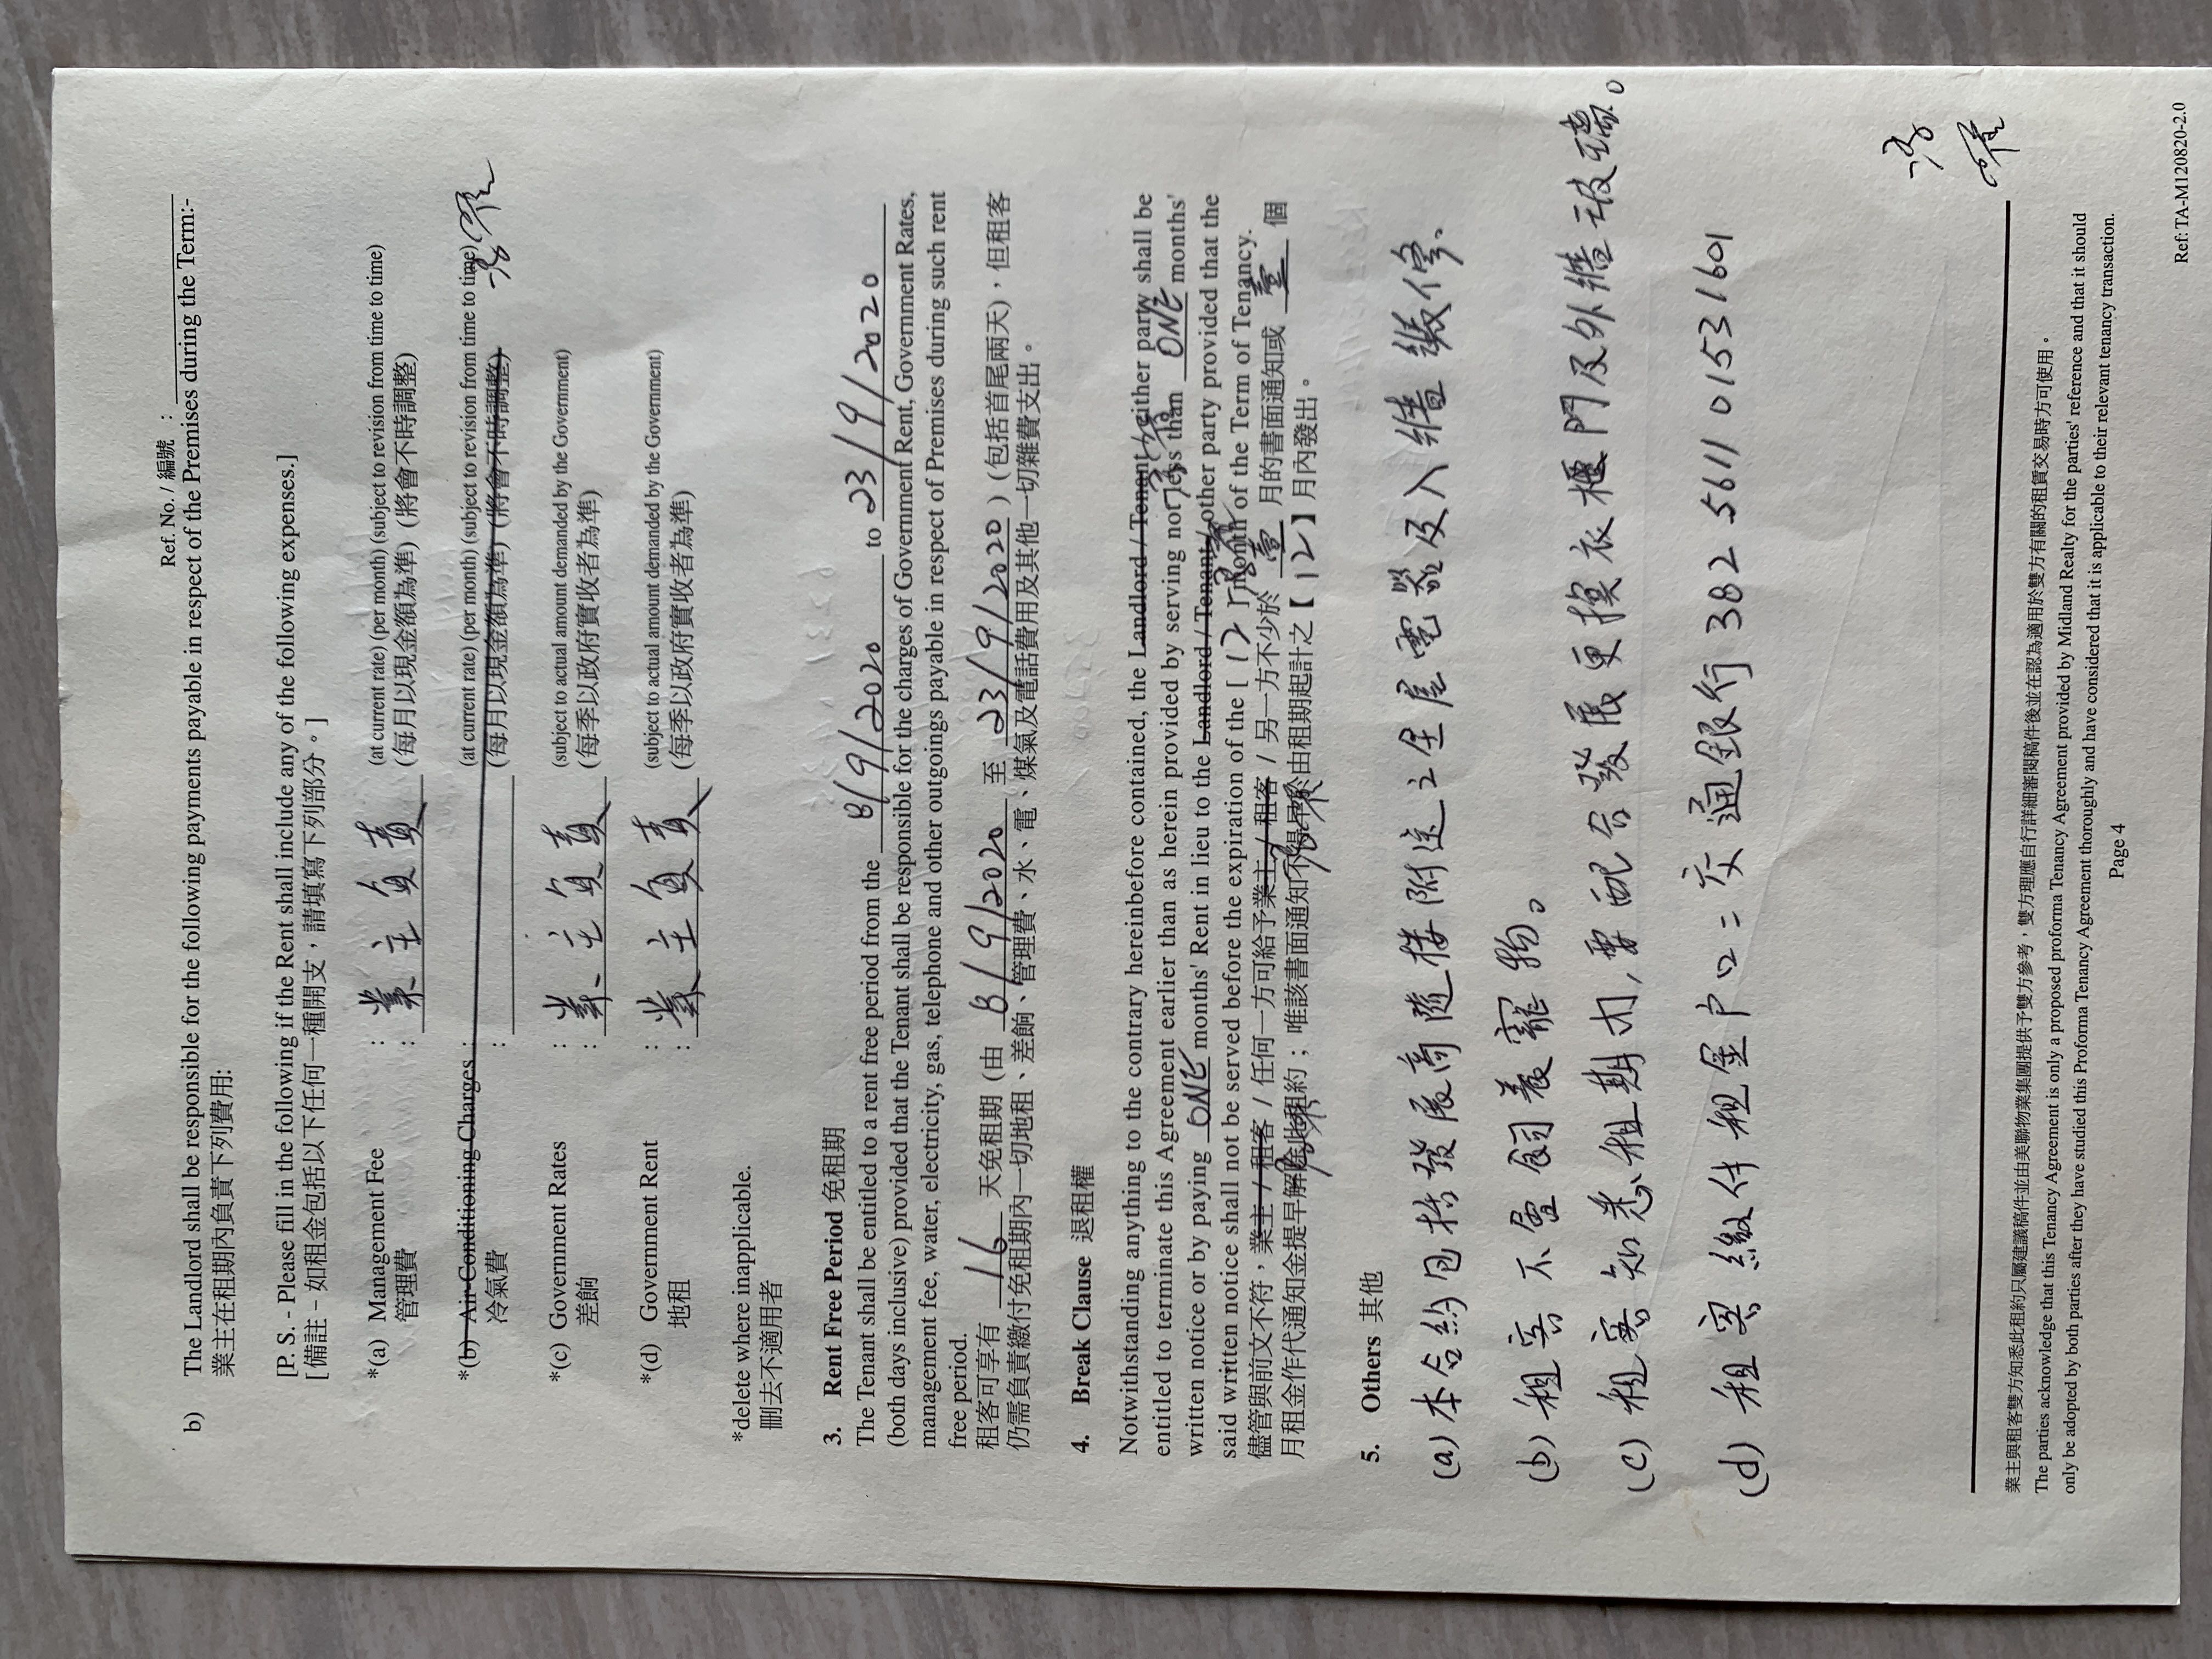 Ref. No. / 編號 :
b) The Landlord shall be responsible for the following payments payable in respect of the Premises during the Term:-
業主在租期內負責下列費用:
[P. S. - Please fill in the following if the Rent shall include any of the following expenses.]
[備註 - 如租金包括以下任何一種開支，請填寫下列部分。]
*(a) Management Fee : 業主負責 (at current rate) (per month) (subject to revision from time to time)
管理費 : (每月以現金額為準) (將會不時調整)
*(b) Air-Conditioning Charges : (at current rate) (per month) (subject to revision from time to time)
冷氣費 : (每月以現金額為準) (將會不時調整)
*(c) Government Rates : 業主負責 (subject to actual amount demanded by the Government)
差餉 : (每季以政府實收者為準)
*(d) Government Rent : 業主負責 (subject to actual amount demanded by the Government)
地租 : (每季以政府實收者為準)
*delete where inapplicable.
刪去不適用者
3. Rent Free Period 免租期
The Tenant shall be entitled to a rent free period from the 8/9/2020 to 23/9/2020
(both days inclusive) provided that the Tenant shall be responsible for the charges of Government Rent, Government Rates,
management fee, water, electricity, gas, telephone and other outgoings payable in respect of Premises during such rent
free period.
租客可享有 16 天免租期 (由 8/9/2020 至 23/9/2020) (包括首尾兩天)，但租客
仍需負責繳付免租期內一切地租、差餉、管理費、水、電、煤氣及電話費用及其他一切雜費支出。
4. Break Clause 退租權
Notwithstanding anything to the contrary hereinbefore contained, the Landlord / Tenant / either party shall be
entitled to terminate this Agreement earlier than as herein provided by serving not less than ONE months'
written notice or by paying ONE months' Rent in lieu to the Landlord / Tenant / other party provided that the
said written notice shall not be served before the expiration of the [ 12 ] month of the Term of Tenancy.
儘管與前文不符，業主 / 租客 / 任何一方可給予業主 / 租客 / 另一方不少於 壹 月的書面通知或 壹 個
月租金作代通知金提早解除此租約；唯該書面通知不得早於由租期起計之【12】月內發出。
5. Others 其他
(a) 本合約包括發展商隨樓附送之全屋電器及入牆傢俬、
(b) 租客不會飼養寵物。
(c) 租客知悉租期內，要配合發展更換衣櫃門及外牆玻璃。
(d) 租客繳付租金户口：交通銀行 382 5611 0153 1601
業主與租客雙方知悉此租約只屬建議稿件並由美聯物業集團提供予雙方參考，雙方理應自行詳細審閱稿件後並在認為適用於雙方有關的租賃交易時方可使用。
The parties acknowledge that this Tenancy Agreement is only a proposed proforma Tenancy Agreement provided by Midland Realty for the parties' reference and that it should
only be adopted by both parties after they have studied this Proforma Tenancy Agreement thoroughly and have considered that it is applicable to their relevant tenancy transaction.
Page 4
Ref: TA-M120820-2.0